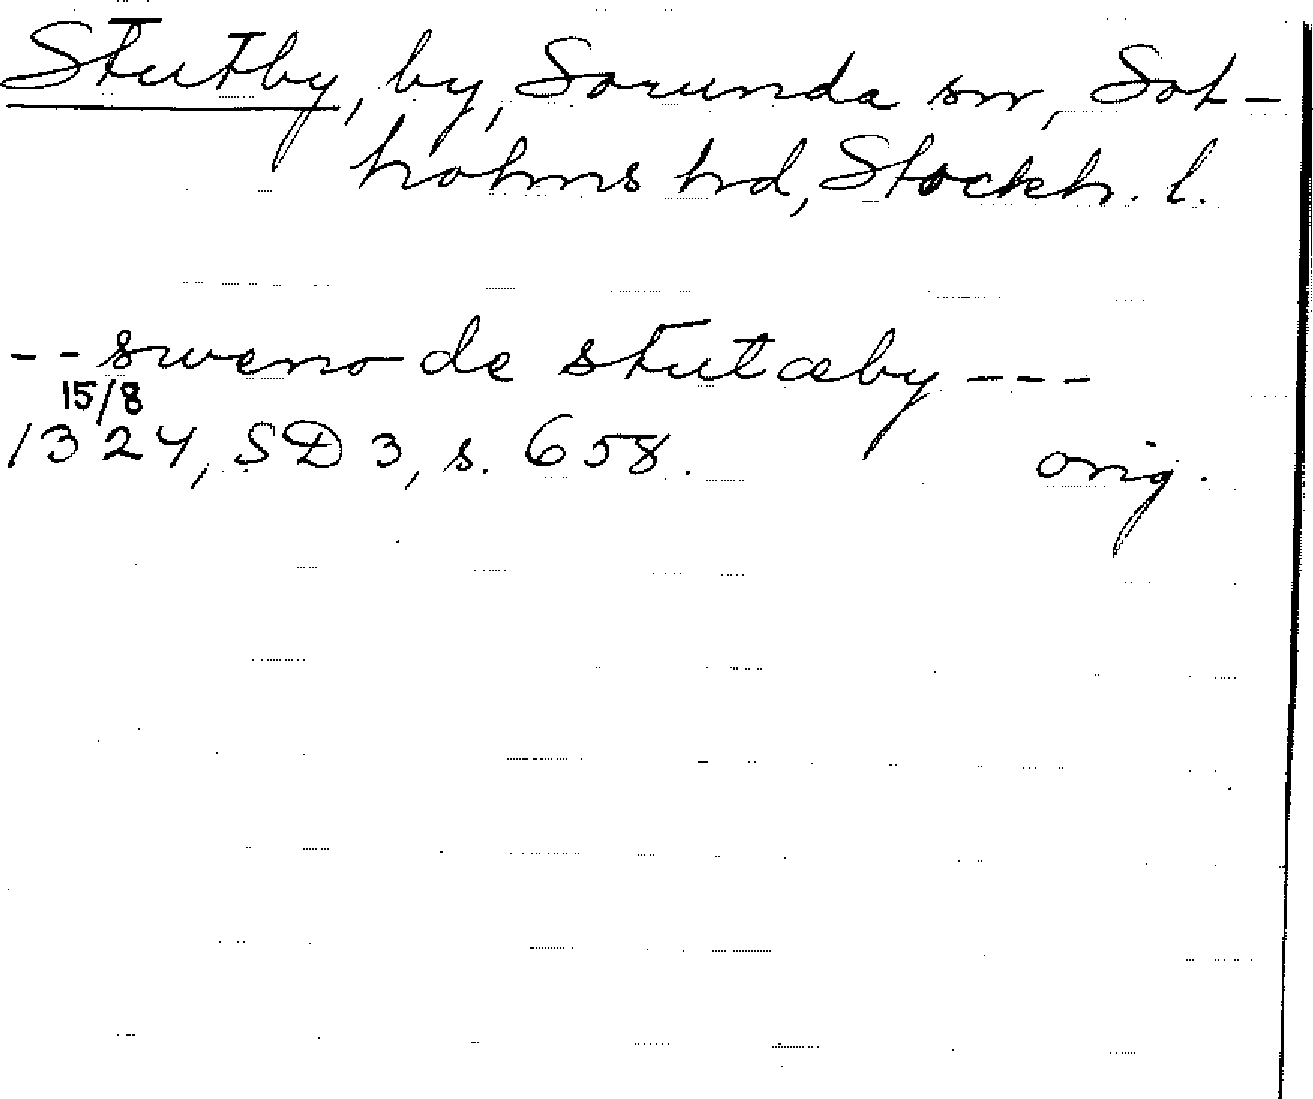 Stutby, by, Sorunda sn, Sot-
holms hd, Stockh. l.
-- sweno de stutæby ---
15/8
1324, SD 3, s. 658. orig.